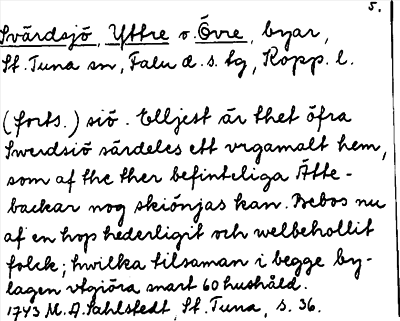 5.
Svärdsjö, Yttre o. Övre, byar,
St. Tuna sn, Falu d. s. tg, Kopp. l.
(forts.) siö. Elljest är thet öfra
Swerdsiö särdeles ett vrgamalt hem,
som af the ther befinteliga Ätte-
backar nog skiönjas kan. Bebos nu
af en hop hederligit och welbehollit
folck; hwilka tilsaman i begge by-
lagen vtgiöra snart 60 hushåld.
1743 M. A. Sahlstedt, St. Tuna, s. 36.